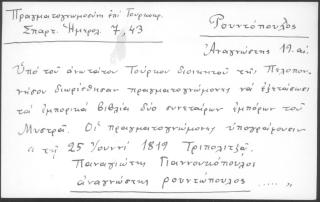 Πραγματογνωμοσύνη ἐπὶ Τουρκοκρ.
Σπαρτ. Ἡμερολ. 7, 43
Ρουντόπουλος
Ἀναγνώστης 19. αἰ.
Ὑπό τοῦ ἀνωτάτου Τούρκου διοικητοῦ τῆς Πελοπον-
νήσου διωρίσθησαν πραγματογνώμονες νά ἐξετάσωσι
τά ἐμπορικά βιβλία δύο συνεταίρων ἐμπόρων τοῦ
Μυστρᾶ. Οἱ πραγματογνώμονες ὑπογράφουσιν
« τῇ 25 Ἰουνίου 1819 Τριπολιτζᾶ
Παναγιώτης Γιαννουκόπουλος
ἀναγνώστης ρουντόπουλος ..... »